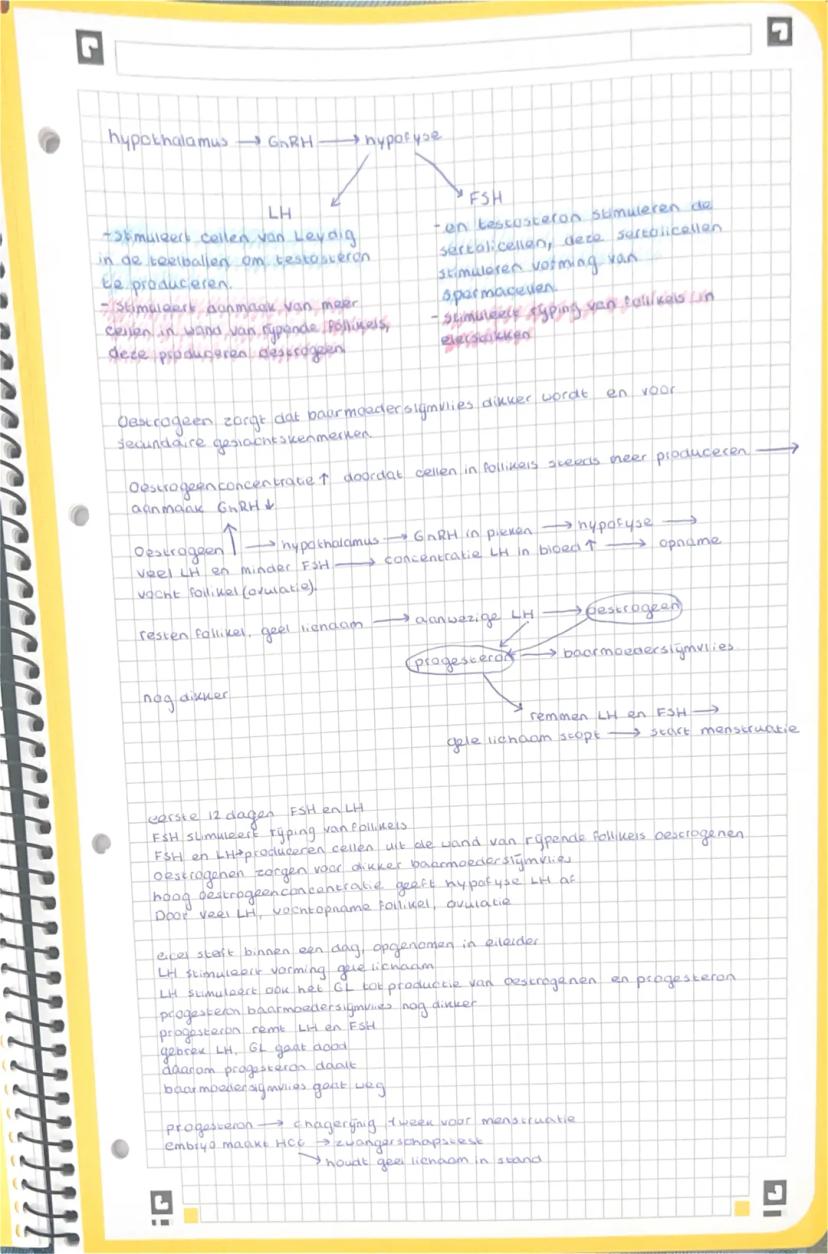 hypothalamus → GnRH → hypofyse
LH
FSH
- stimuleert cellen van Leydig
in de teelballen om testosteron
te produceren.
- stimuleert aanmaak van meer
cellen in wand van rijpende follikels,
deze produceren oestrogeen
- en testosteron stimuleren de
sertolicellen, deze sertolicellen
stimuleren vorming van
spermacellen.
- stimuleert rijping van follikels in
eierstokken
Oestrogeen zorgt dat baarmoederslijmvlies dikker wordt en voor
secundaire geslachtskenmerken.
Oestrogeenconcentratie ↑ doordat cellen in follikels steeds meer produceren →
aanmaak GnRH ↓
Oestrogeen ↑ → hypothalamus → GnRH in pieken → hypofyse →
veel LH en minder FSH → concentratie LH in bloed ↑ → opname
vocht follikel (ovulatie).
resten follikel, geel lichaam → aanwezige LH → oestrogeen
progesteron → baarmoederslijmvlies
nog dikker
remmen LH en FSH →
gele lichaam stopt → start menstruatie
eerste 12 dagen FSH en LH
FSH stimuleert rijping van follikels
FSH en LH → produceren cellen uit de wand van rijpende follikels oestrogenen
oestrogenen zorgen voor dikker baarmoederslijmvlies
hoog oestrogeenconcentratie geeft hypofyse LH af
Door veel LH, vochtopname follikel, ovulatie
eicel sterft binnen een dag, opgenomen in eileider
LH stimuleert vorming gele lichaam
LH stimuleert ook het GL tot productie van oestrogenen en progesteron
progesteron baarmoederslijmvlies nog dikker
progesteron remt LH en FSH
gebrek LH, GL gaat dood
daarom progesteron daalt
baarmoederslijmvlies gaat weg
progesteron → chagerijnig 1 week voor menstruatie
embryo maakt HCG → zwangerschapstest
→ houdt geel lichaam in stand